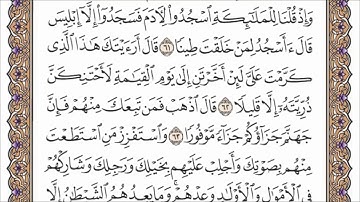 وَإِذْ قُلْنَا لِلْمَلَٰٓئِكَةِ ٱسْجُدُوا۟ لِءَادَمَ فَسَجَدُوٓا۟ إِلَّآ إِبْلِيسَ
قَالَ ءَأَسْجُدُ لِمَنْ خَلَقْتَ طِينًا ٦١ قَالَ أَرَءَيْتَكَ هَٰذَا ٱلَّذِى
كَرَّمْتَ عَلَىَّ لَئِنْ أَخَّرْتَنِ إِلَىٰ يَوْمِ ٱلْقِيَٰمَةِ لَأَحْتَنِكَنَّ
ذُرِّيَّتَهُۥٓ إِلَّا قَلِيلًا ٦٢ قَالَ ٱذْهَبْ فَمَن تَبِعَكَ مِنْهُمْ فَإِنَّ
جَهَنَّمَ جَزَآؤُكُمْ جَزَآءً مَّوْفُورًا ٦٣ وَٱسْتَفْزِزْ مَنِ ٱسْتَطَعْتَ
مِنْهُم بِصَوْتِكَ وَأَجْلِبْ عَلَيْهِم بِخَيْلِكَ وَرَجِلِكَ وَشَارِكْهُمْ
فِى ٱلْأَمْوَٰلِ وَٱلْأَوْلَٰدِ وَعِدْهُمْ ۚ وَمَا يَعِدُهُمُ ٱلشَّيْطَٰنُ إِلَّا